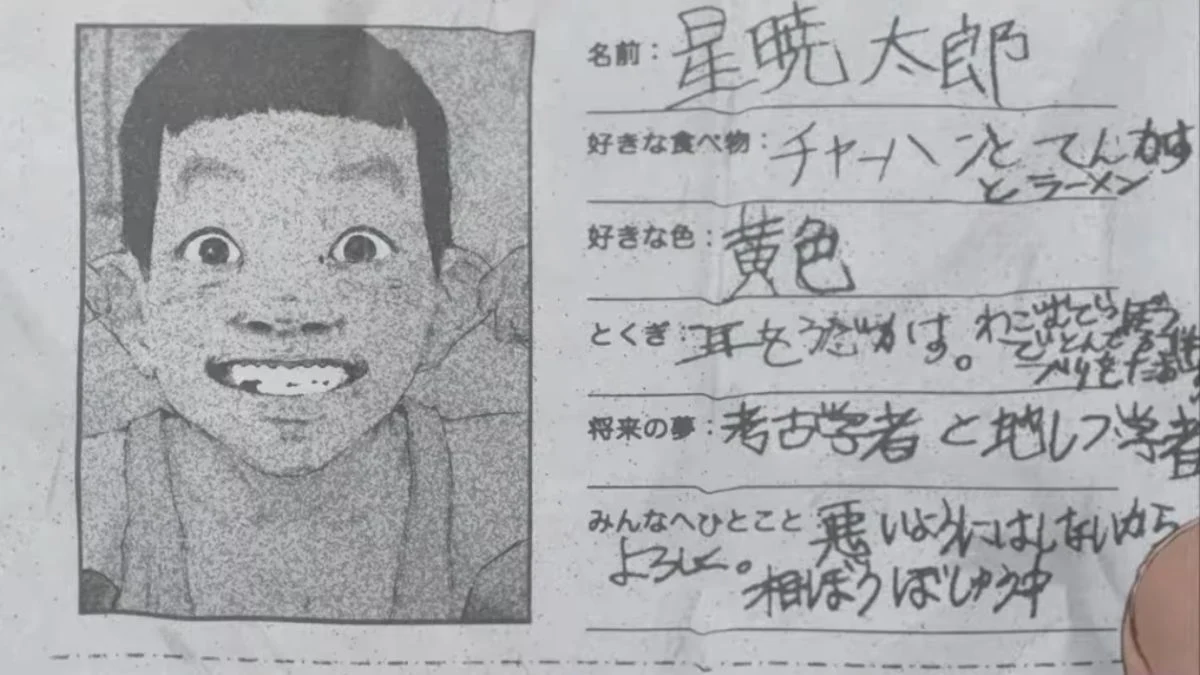 名前：星暁太郎
好きな食べ物：チャーハンと てんかす
とラーメン
好きな色：黄色
とくぎ：耳をうごかす。わごむでら
でとんで
べりをた
将来の夢：考古学者と地しつ学者
みんなへひとこと 悪いようにはしないから
よろしく。
相ぼうぼしゅう中